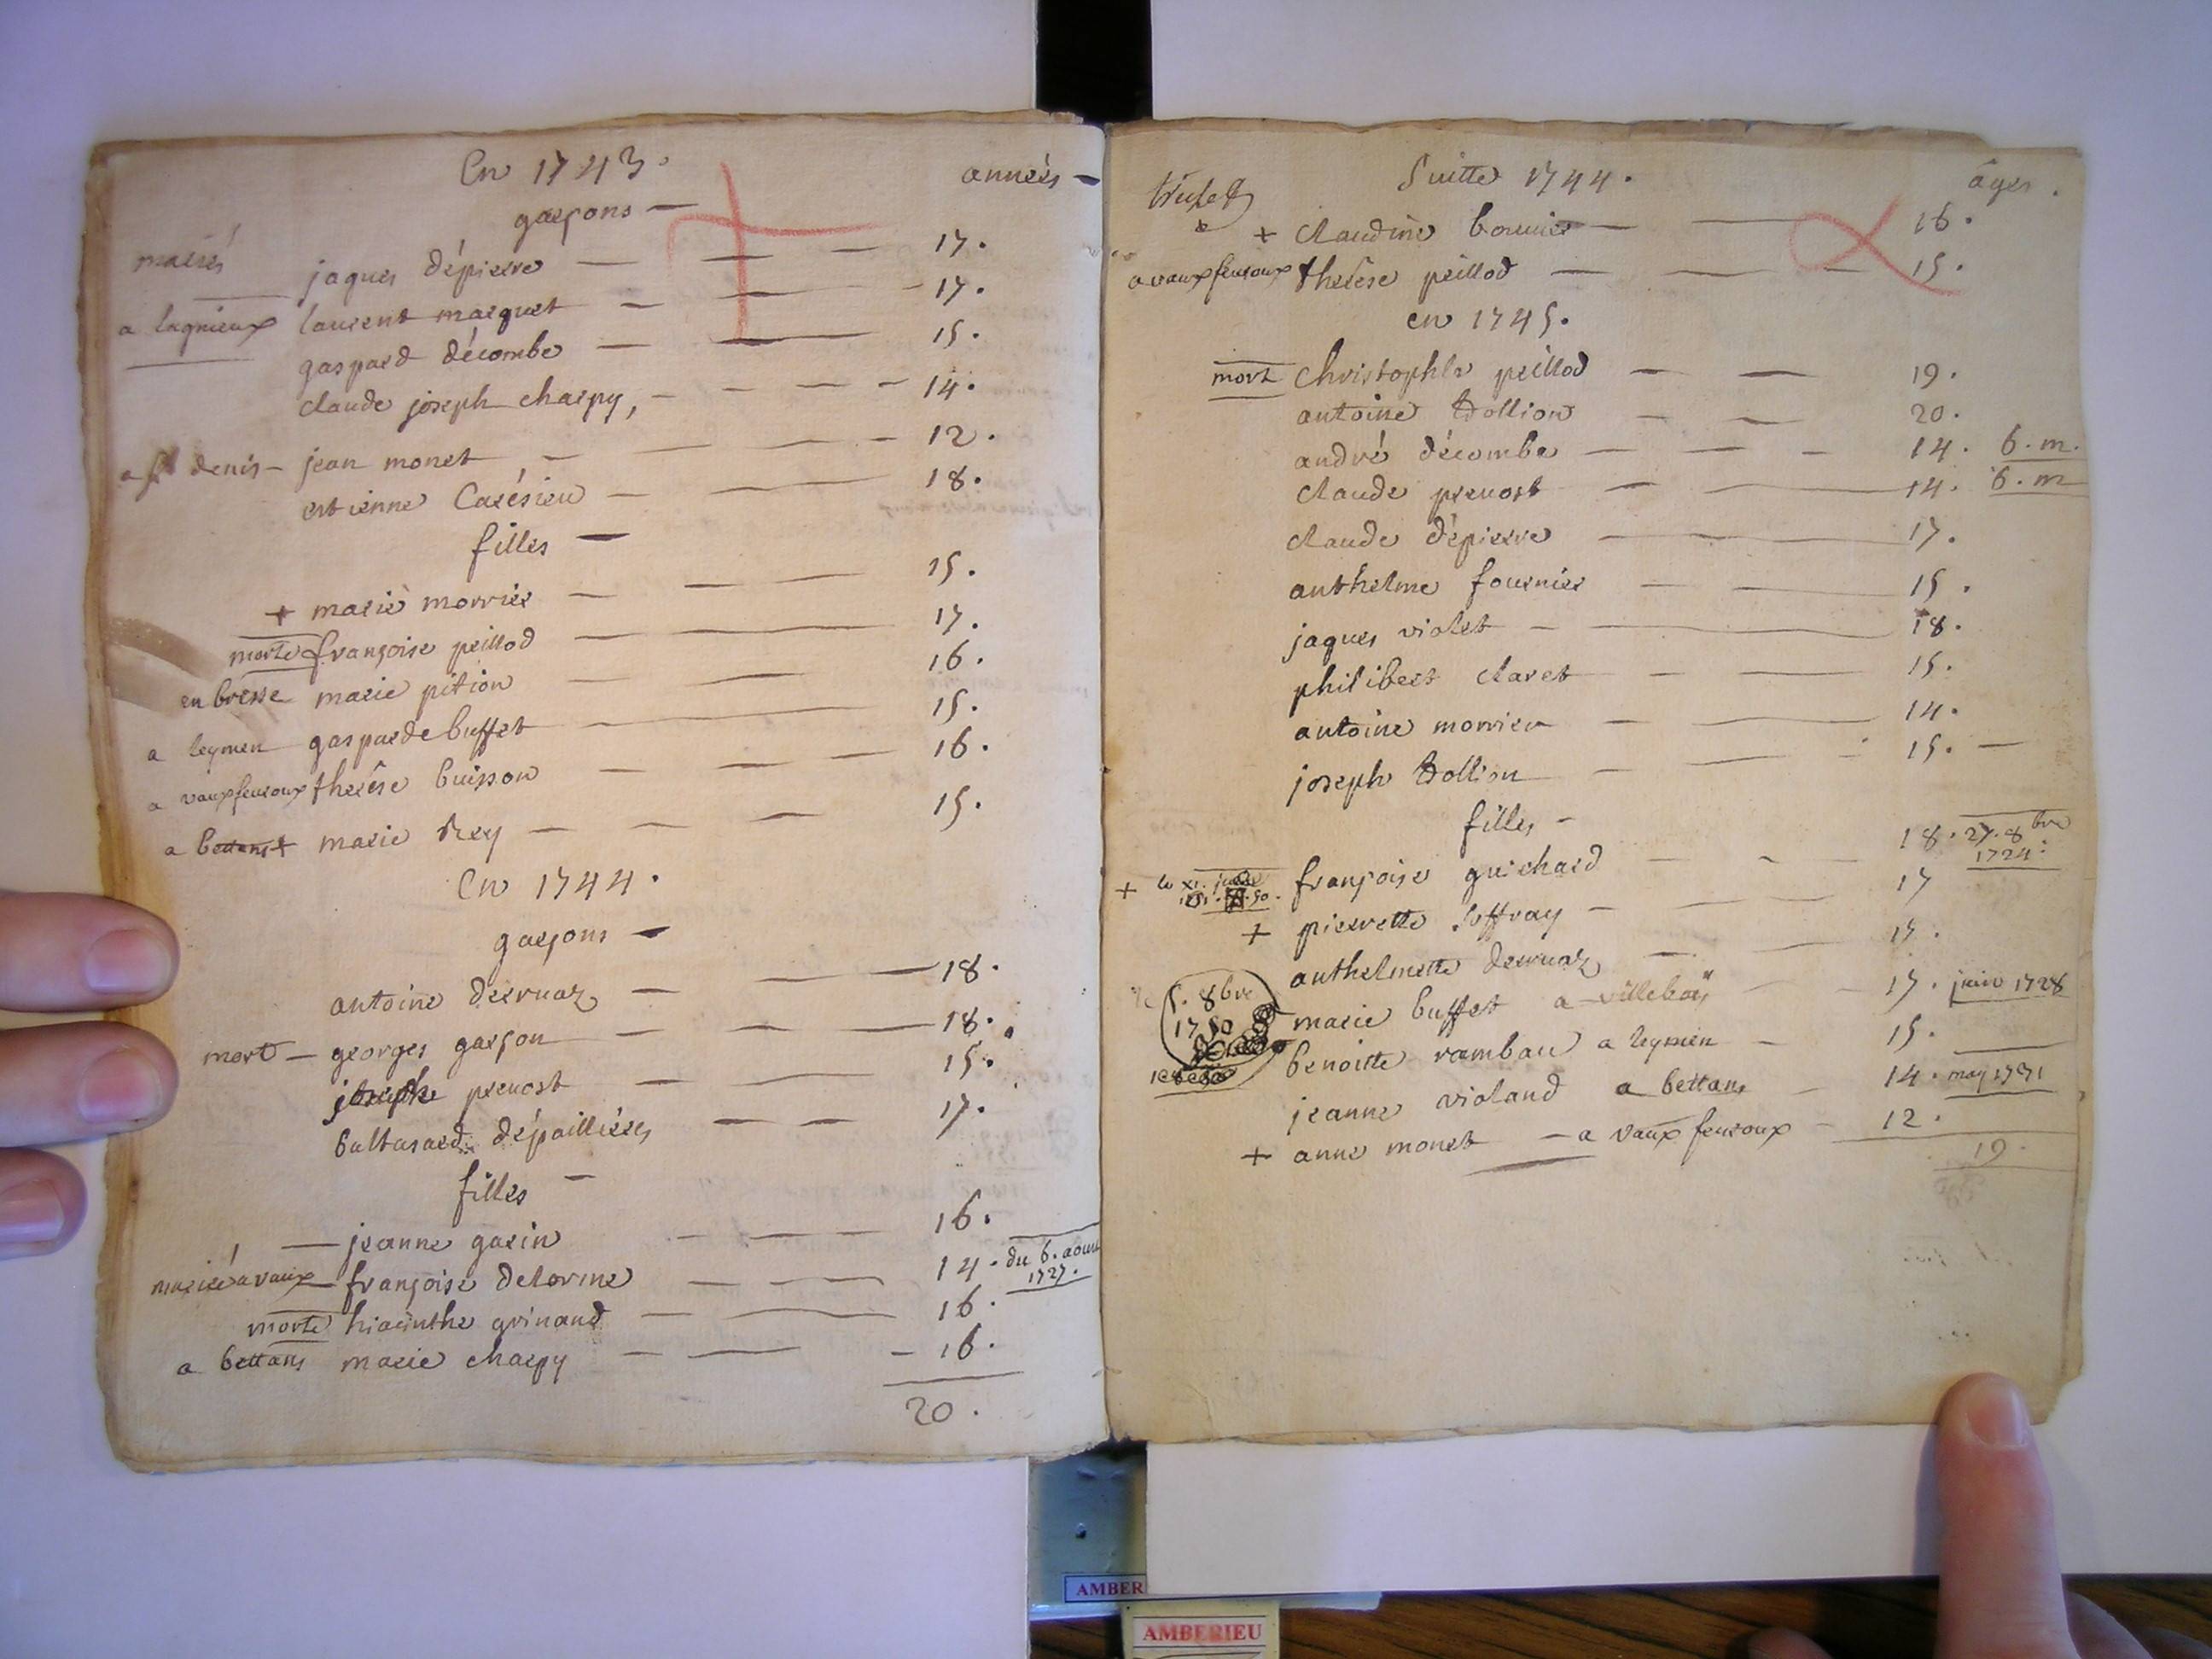 En 1743.
années
garçons
mariés jaques dépierre 17.
a lagnieux laurent marquet 17.
gaspard décombe 15.
claude joseph charpy, 14.
a st denis jean monet 12.
estienne Carésieu 18.
filles
+ marie morrier 15.
morte françoise peillod 17.
en bresse marie pition 16.
a leymen gasparde buffet 15.
a vauxfeuroux therêse buisson 16.
a bettans marie Rey 15.
En 1744.
garçons
antoine deervaz 18.
mort georges garçon 18.
joseph prevost 15.
baltasard dépaillières 17.
filles
jeanne garin 16.
mariée a vaux françoise delorme 14. du 6. aoust
1727.
morte hiacinthe grinand 16.
a bettans marie charpy 16.
20.
Suitte 1744.
âges.
+ claudine bournier 16.
a vauxfeuroux therêse peillod 15.
en 1745.
mort christophle peillod 19.
antoine tollion 20.
andré décombe 14. 6. m.
claude prevost 14. 6. m
claude dépierre 17.
anthelme fournier 15.
jaques violet 18.
philibert claret 15.
antoine morrier 14.
joseph tollion 15.
filles
+ le françoise guichard 18. 27. 8bre
1724.
+ pierrette joffray 17
anthelmette deervaz 15.
5. 8bre
1750 marie buffet a villebois 17. juin 1728
benoitte rambau a leymen 15.
jeanne violand a bettans 14. may 1731
+ anne monet a vaux feuroux 12.
19.
AMBER
AMBERIEU